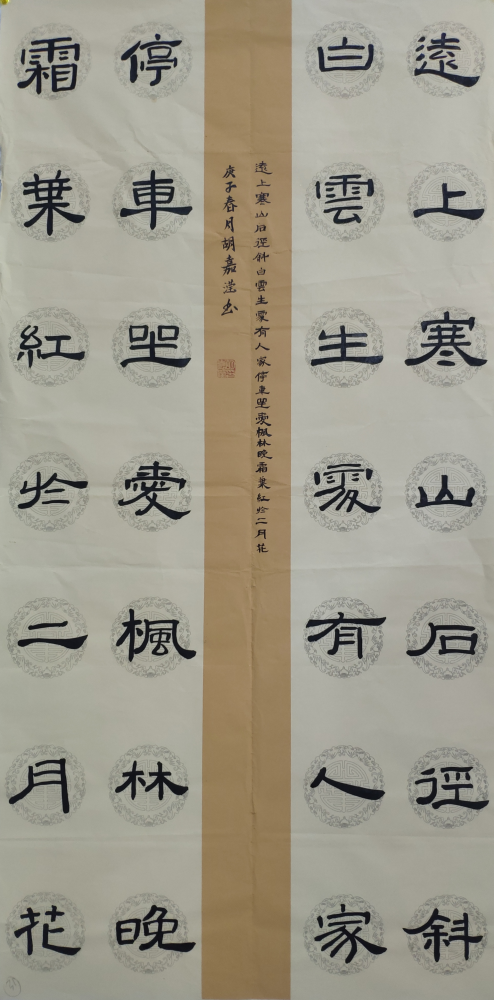 遠上寒山石徑斜
白雲生處有人家
遠上寒山石徑斜白雲生處有人家停車坐愛楓林晚霜葉紅於二月花
庚子春月胡嘉瀅書
停車坐愛楓林晚
霜葉紅於二月花